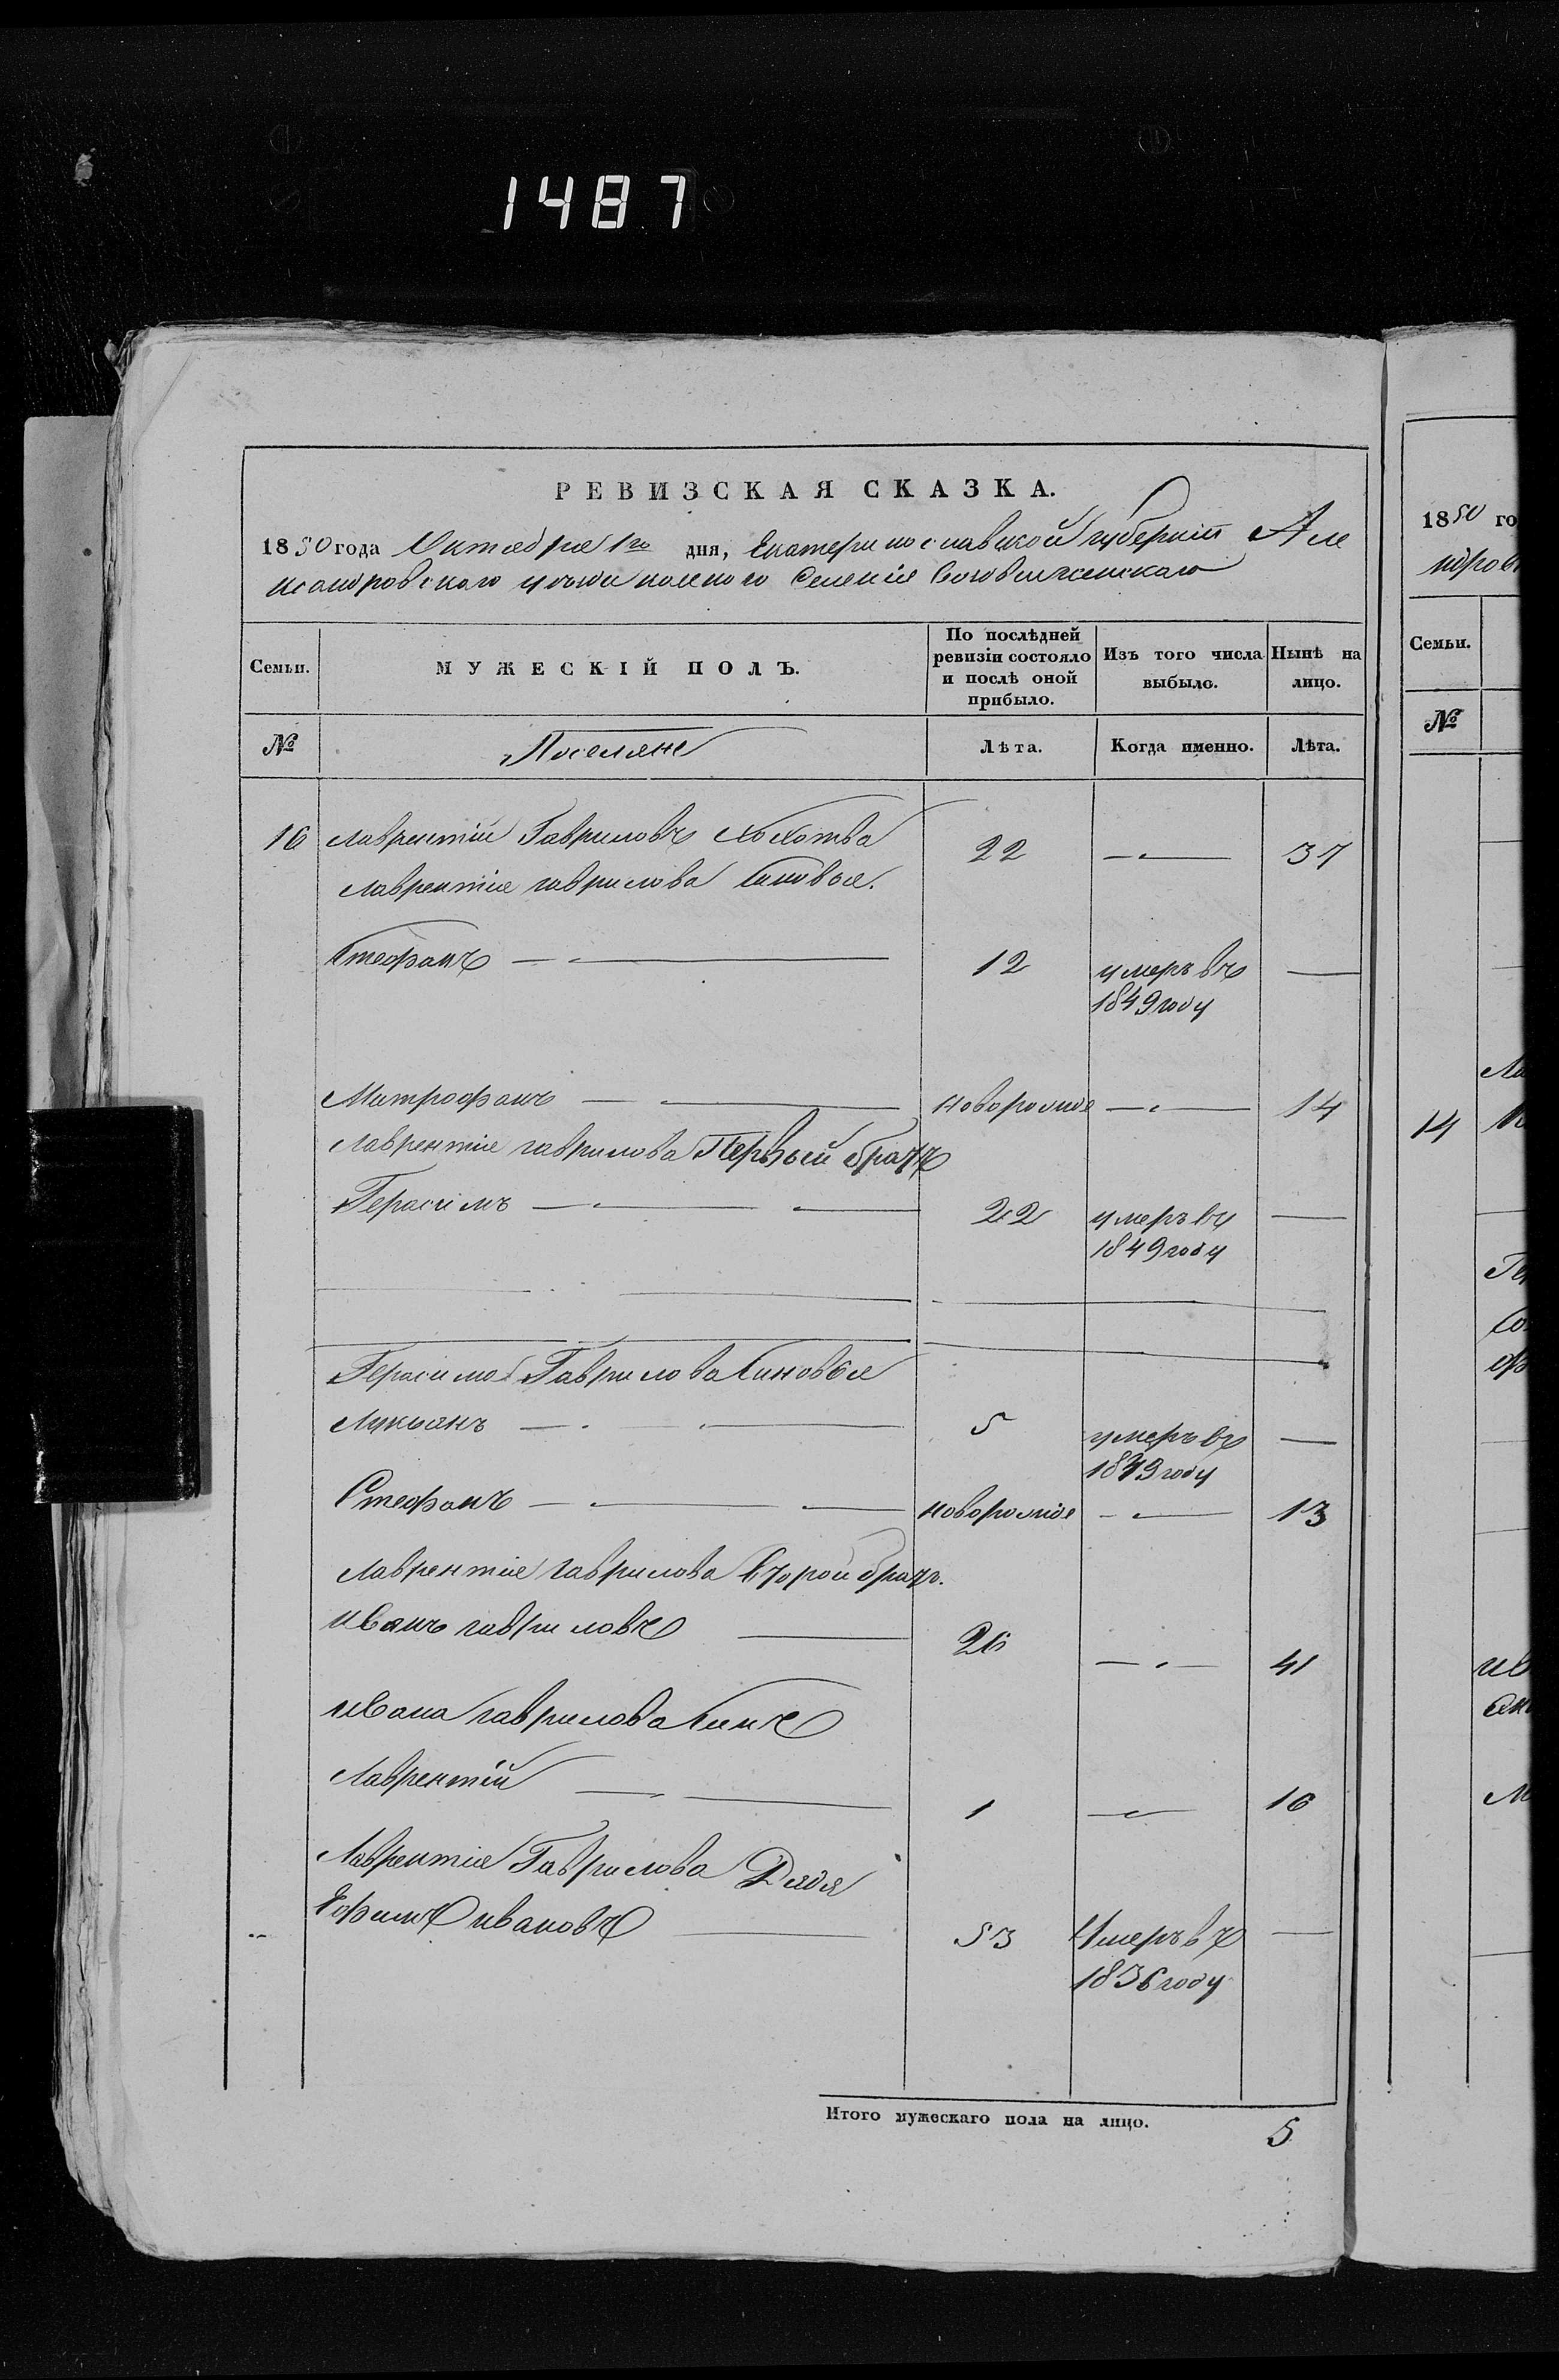 1487
РЕВИЗСКАЯ СКАЗКА.
1850 года Октября 1го дня, Екатеринославской губерніи Але
ксандровского уезда казенного Селенія Воздвиженскаго
Семьи.
МУЖЕСКІЙ ПОЛЪ.
По послѣдней ревизіи состояло и послѣ оной прибыло.
Изъ того числа выбыло.
Нынѣ на лицо.
№
Поселяне
Лѣта.
Когда именно.
Лѣта.
16 Лаврентій Гавриловъ 22 — 37
Лаврентія гаврилова Синовья.
Стефанъ — 12 умеръ въ 1849 году —
Митрофанъ — новорожде — 14
Лаврентія гаврилова Первый братъ
Герасимъ — 22 умеръ въ 1849 году —
Герасима Гаврилова Синовья
Лукьянъ — 5 умеръ въ 1849 году —
Стефанъ — новорожде — 13
Лаврентія гаврилова Второй братъ.
иванъ гавриловъ — 26 — 41
ивана гаврилова Синъ
Лаврентій — 1 — 16
Лаврентія Гаврилова Дядя
Ефимъ ивановъ — 53 Умеръ въ 1836 году —
Итого мужескаго пола на лицо. 5
1850 го
Семьи.
№
14